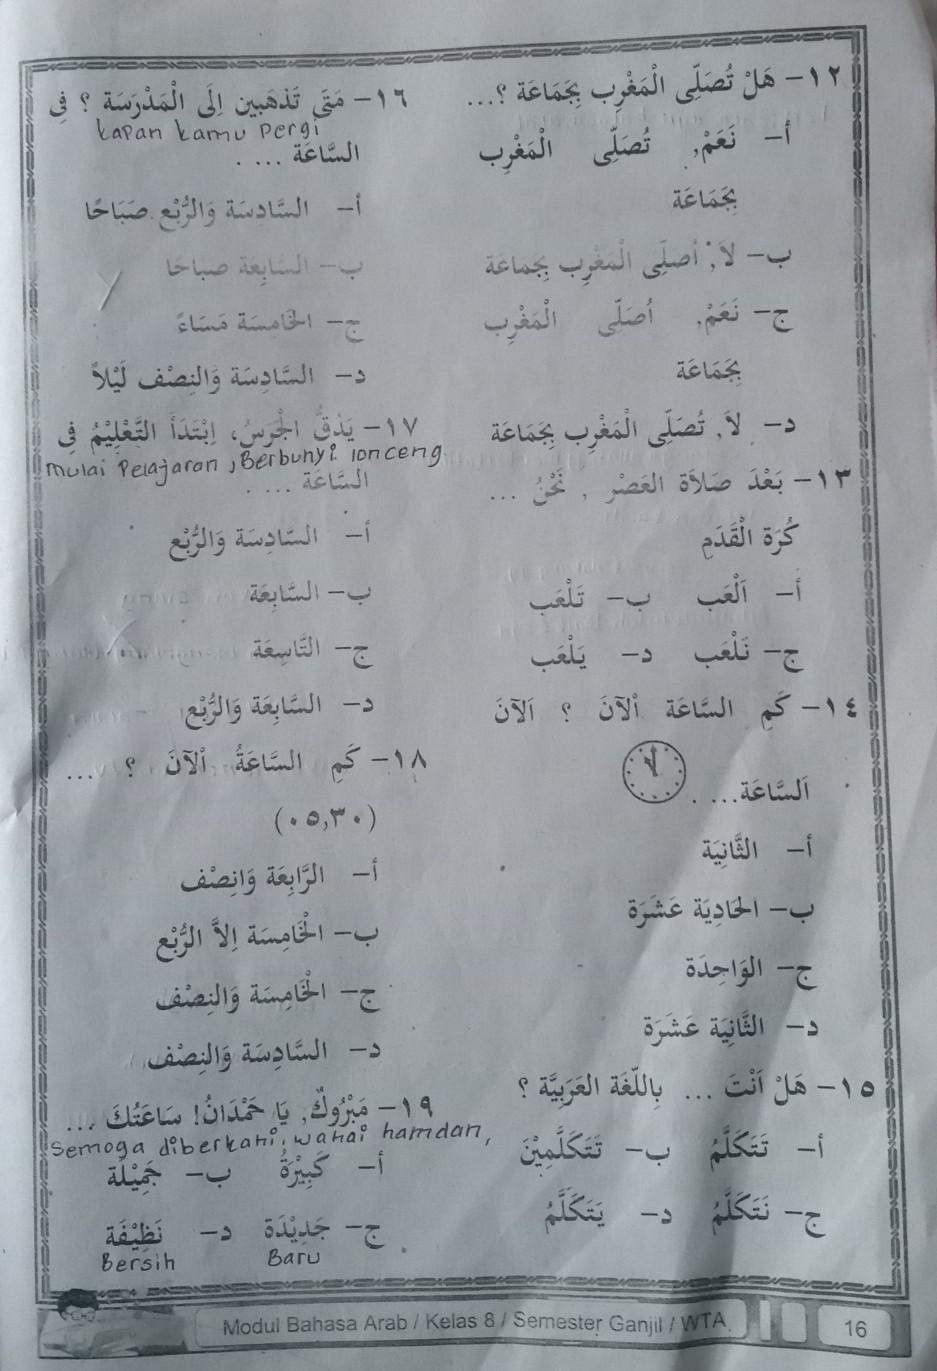 ١٢- هَلْ تُصَلِّى الْمَغْرِب بِجَمَاعَة ؟...
أ- نَعَمْ, تُصَلِّى الْمَغْرِب
بِجَمَاعَة
ب- لاَ, أُصَلِّى الْمَغْرِب بِجَمَاعَة
ج- نَعَمْ, أُصَلِّى الْمَغْرِب
بِجَمَاعَة
د- لاَ, تُصَلِّى الْمَغْرِب بِجَمَاعَة
١٣- بَعْدَ صَلاَة العَصْر , نَحْنُ ...
كُرَة الْقَدَمِ
أ- اَلْعَب ب- تَلْعَب
ج- نَلْعَب د- يَلْعَب
١٤- كَمِ السَّاعَة اْلآنَ ؟ اَلآنَ
اَلسَّاعَة.... .
أ- الثَّانِيَة
ب- الحَادِيَة عَشَرَة
ج- الوَاحِدَة
د- الثَّانِيَة عَشَرَة
١٥- هَلْ اَنْتَ ... بِاللُّغَة العَرَبِيَّة ؟
أ- تَتَكَلَّمُ ب- تَتَكَلَّمِيْنَ
ج- نَتَكَلَّمُ د- يَتَكَلَّمُ
١٦- مَتَى تَذْهَبِين اِلَى الْمَدْرَسَة ؟ فِى
kapan kamu pergi
السَّاعَة .... .
أ- السَّادِسَة وَالرُّبْع صَبَاحًا
ب- السَّابِعَة صَبَاحًا
ج- الخَامِسَة مَسَاءً
د- السَّادِسَة وَالنِصْف لَيْلاً
١٧- يَدُقُّ الْجَرَسُ، اِبْتَدَأَ التَّعْلِيْمُ فِى
mulai Pelajaran , Berbunyi lonceng
السَّاعَة .... .
أ- السَّادِسَة وَالرُّبْع
ب- السَّابِعَة
ج- التَّاسِعَة
د- السَّابِعَة وَالرُّبْع
١٨- كَمِ السَّاعَةُ اْلآنَ ؟ ...
(٠٥,٣٠)
أ- الرَّابِعَة وَانِصْف
ب- الْخَامِسَة اِلاَّ الرُّبْع
ج- الْخَامِسَة وَالنِصْف
د- السَّادِسَة وَالنِصْف
١٩- مَبْرُوكٌ, يَا حَمْدَانُ! سَاعَتُكَ ...
Semoga diberkahi, wahai hamdan,
أ- كَبِيْرَةُ ب- جَمِيْلَة
ج- جَدِيْدَة د- نَظِيْفَة
Baru Bersih
Modul Bahasa Arab / Kelas 8 / Semester Ganjil / WTA
16